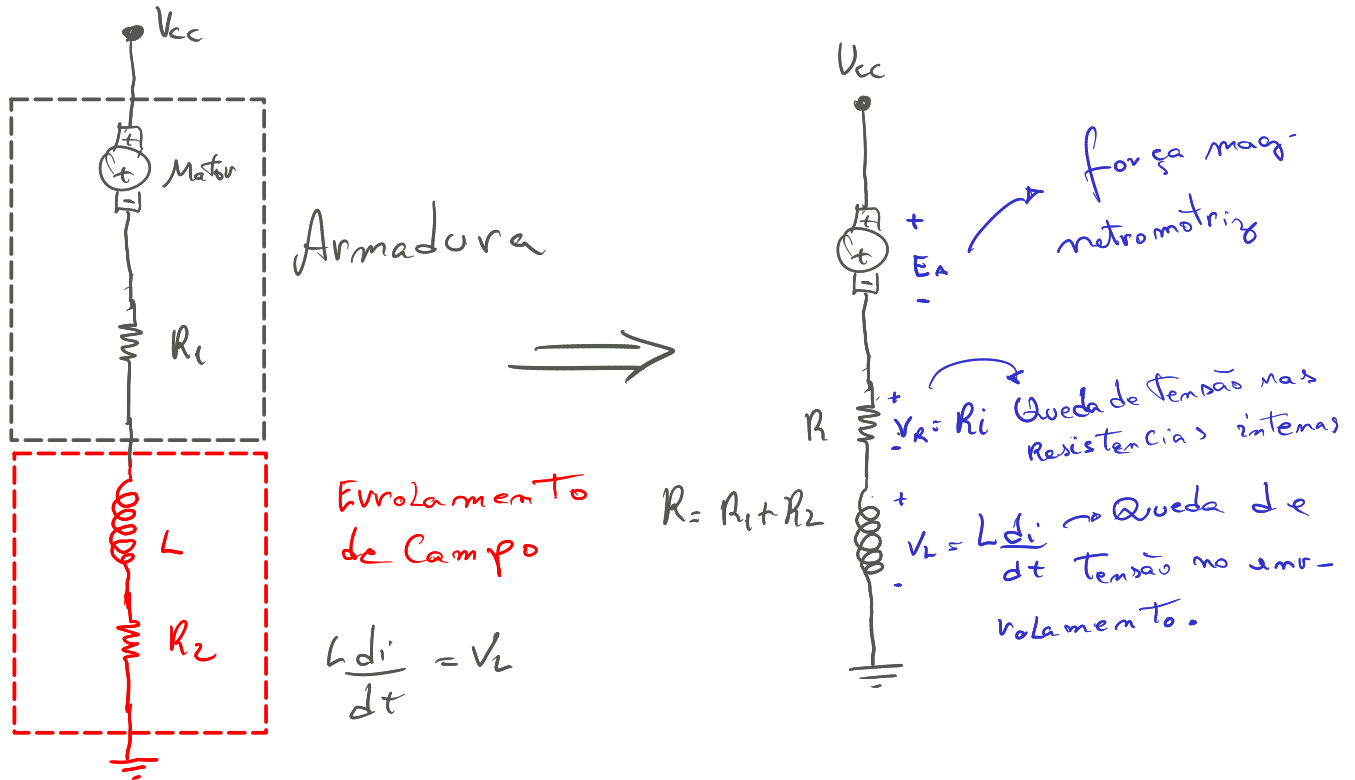 Vcc
+
+
-
Motor
Armadura
R1
L
Enrolamento
de Campo
R2
L di/dt = VL
Vcc
+
+
-
+
EA
-
força mag-
netromotriz
R
+
VR = Ri Queda de Tensão nas
-
Resistencias internas
R = R1 + R2
+
VL = L di/dt → Queda de
-
Tensão no enr-
rolamento.